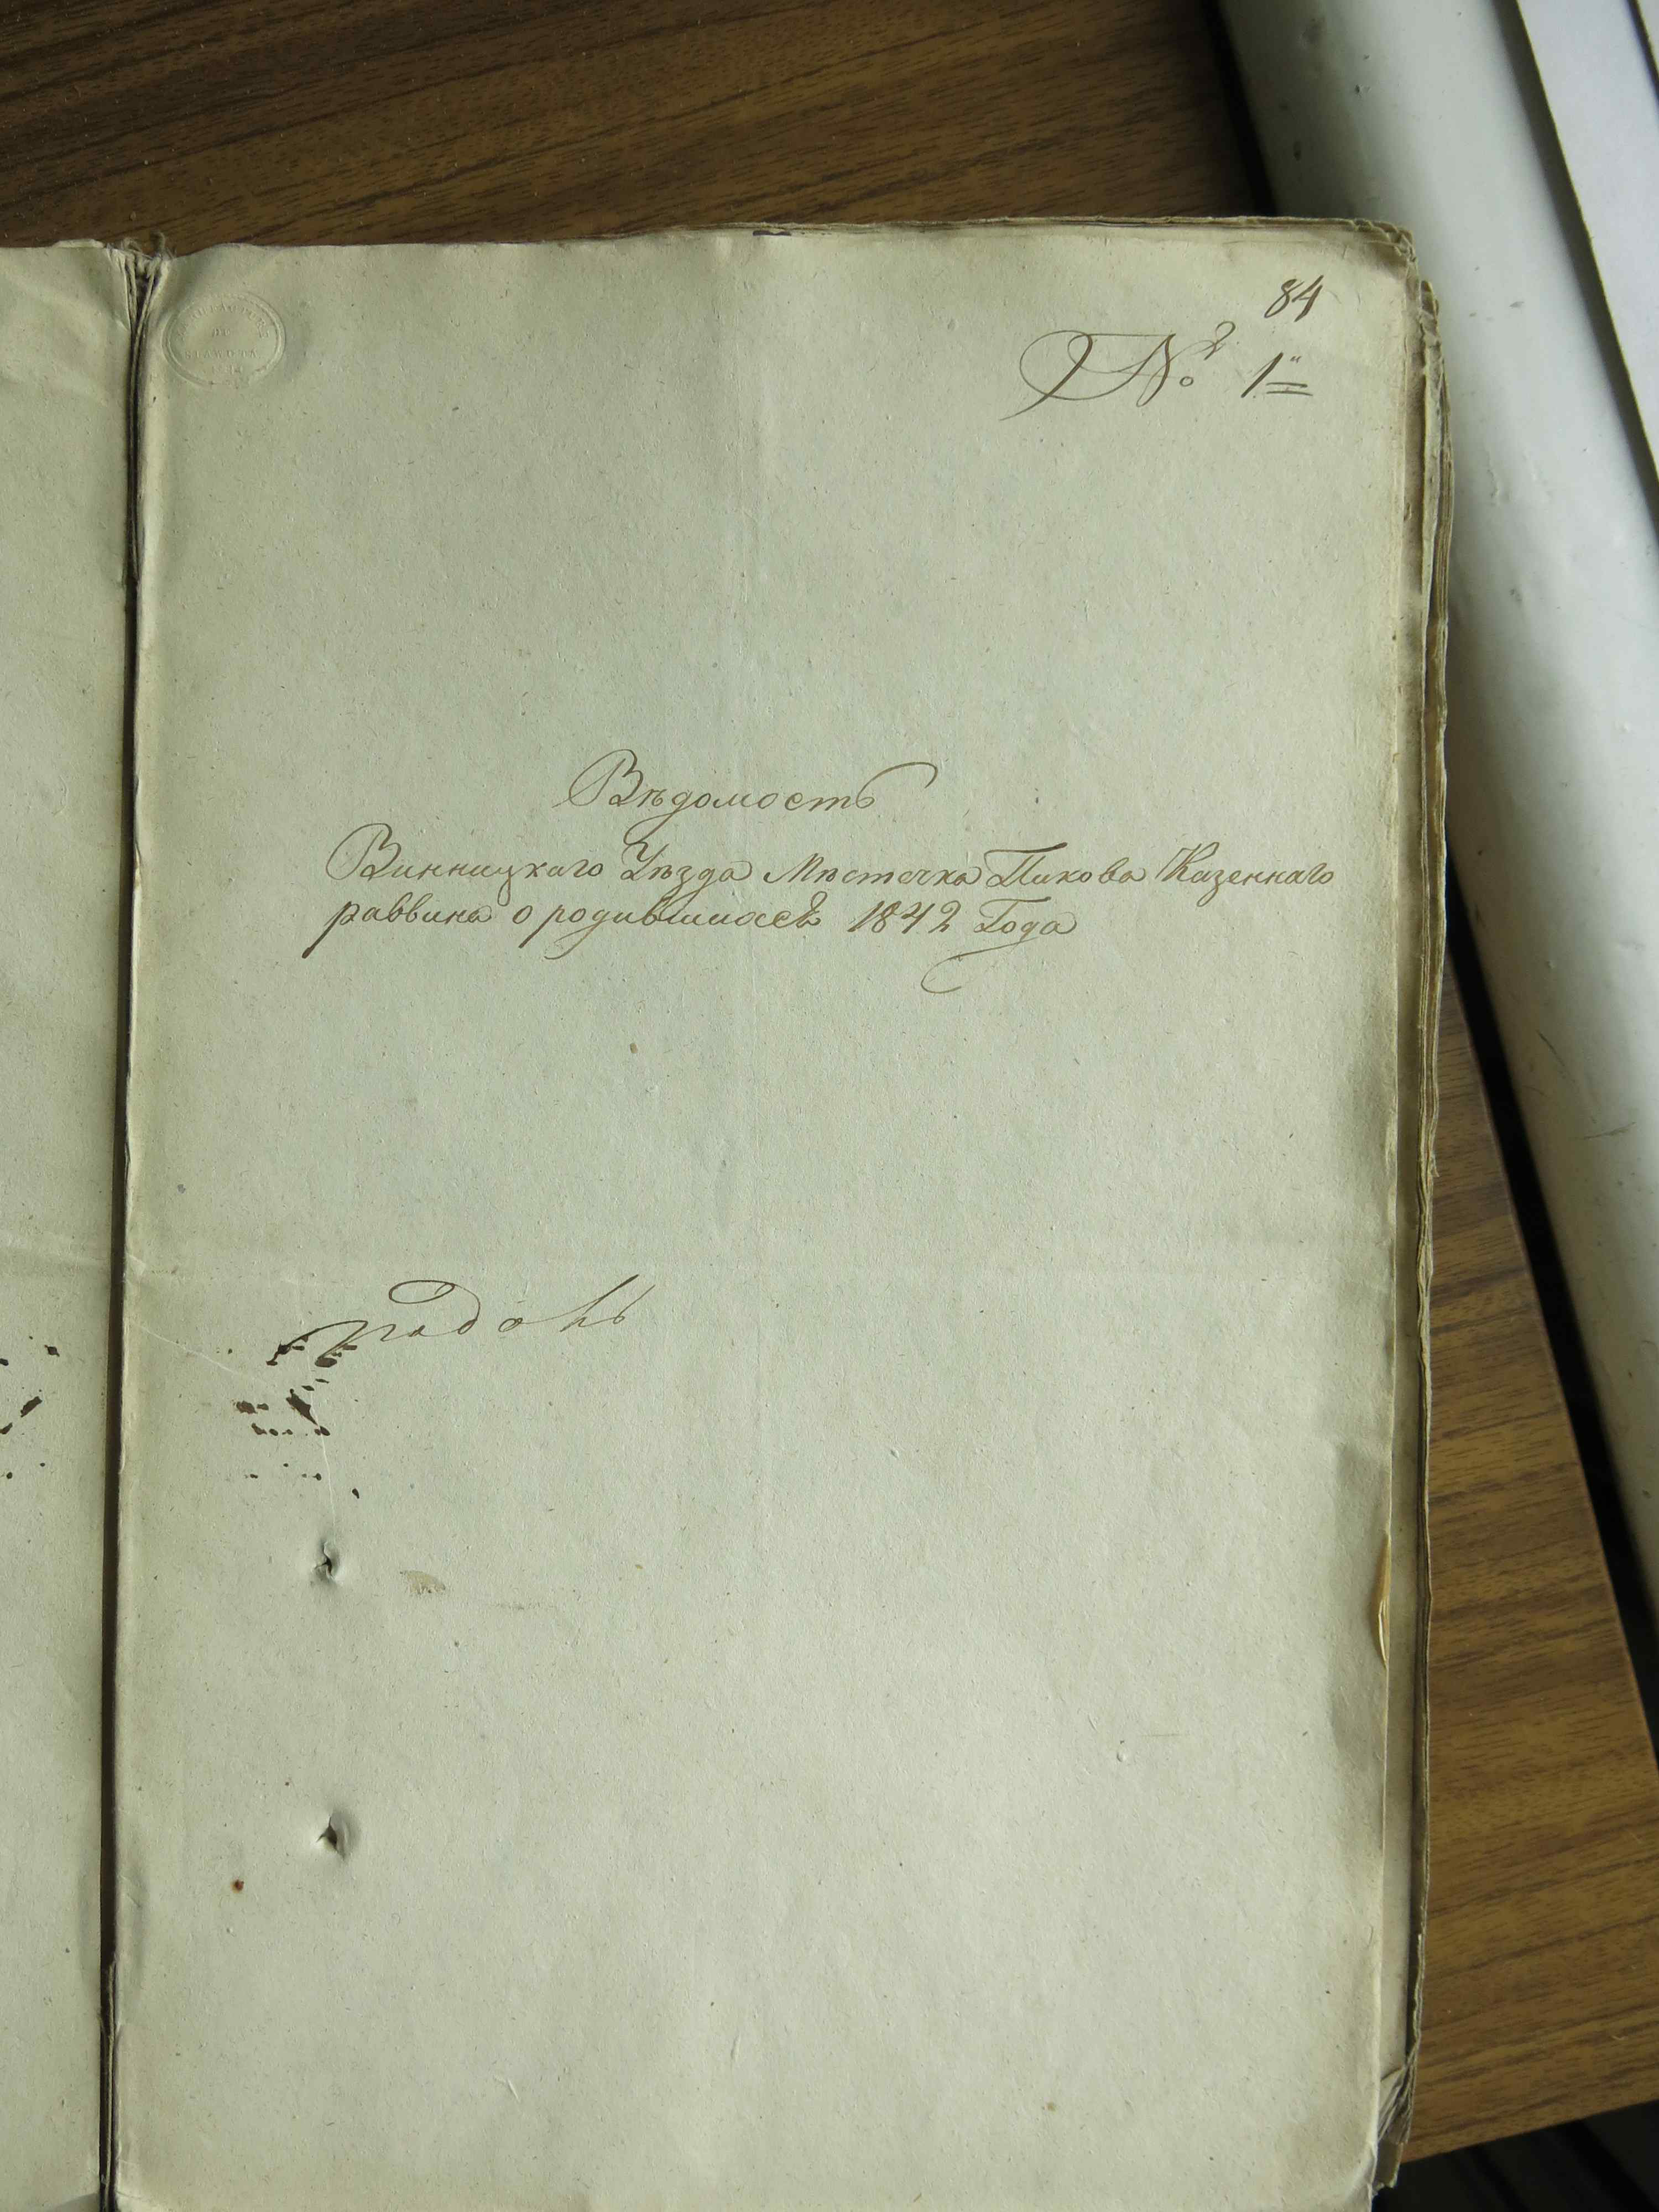 84
№ 1
Вѣдомость
Винницкаго Уѣзда Мѣстечка Пикова Казеннаго
раввина о родившихся 1842 Года